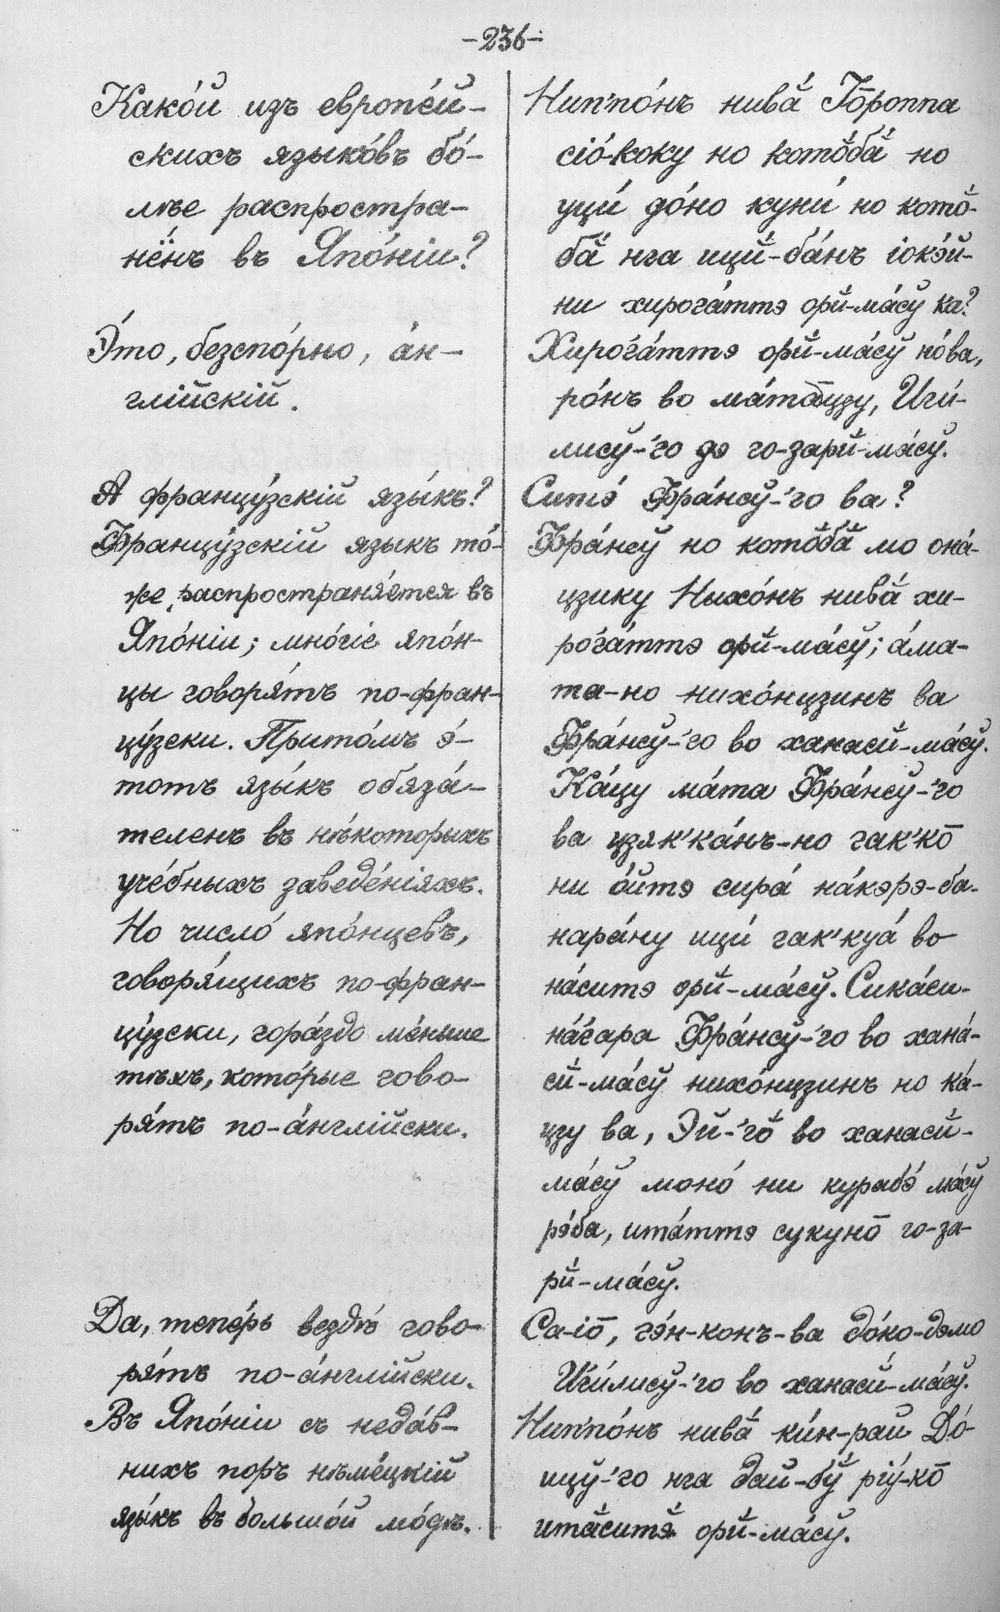 -236-
Како́й изъ европе́й-
скихъ языко́въ бо́-
лѣе распростра-
нёнъ въ Япо́ніи?
Э́то, безспо́рно, а́н-
глійскій.
А францу́зскій язы́къ?
Францу́зскій языкъ то́-
же распространя́ется въ
Япо́ніи; мно́гіе япо́н-
цы говоря́тъ по-фран-
цу́зски. Прито́мъ э́-
тотъ язы́къ обяза́-
теленъ въ нѣкоторыхъ
уче́бныхъ заведе́ніяхъ.
Но число́ япо́нцевъ,
говоря́щихъ по-фран-
цу́зски, гора́здо ме́ньше
тѣхъ, кото́рые гово-
ря́тъ по-а́нглійски.
Да, тепе́рь вездѣ́ гово-
ря́тъ по-а́нглійски.
Въ Япо́ніи съ неда́в-
нихъ поръ нѣме́цкій
язы́къ въ большо́й мо́дѣ.
Нип'по́нъ нивӑ́ Іо̄роппа
сіо́-коку но кото̆́бӑ́ но
уци́ до́но куни́ но кото̆́-
бӑ́ нга ицй́-ба́нъ іокэ́й-
ни хирога́ттэ орй́-ма́сŭ ка?
Хирога́ттэ орй́-ма́сŭ но́ва,
ро́нъ во ма́тадзу, Иги́-
лисŭ-'го дэ го-зарй́-ма́сŭ.
Ситэ́ Фра́нсŭ-'го ва?
Фра́нсŭ но кото̆́бӑ́ мо она́-
цзику Нихо́нъ нивӑ́ хи-
рога́ттэ орй́-ма́сŭ; а́ма-
та-но нихо́нцзинъ ва
Фра́нсŭ-'го во ханасй́-ма́сŭ.
Ка́цу ма́та Фра́нсŭ-'го
ва цзяк'ка́нъ-но гак'ко̄
ни о́йтэ сира́ на́кэрэ-ба-
нара́ну ици́ гак'куа́ во
на́ситэ орй́-ма́сŭ. Сика́си-
на́гара Фра́нсŭ-'го во хана́-
сй-ма́сŭ нихо́нцзинъ но ка́-
цзу ва, Эй-'го̆́ во ханасй́-
ма́сŭ моно́ ни курабэ́ ма́сŭ
рэ́ба, ита́ттэ сукуно̄ го-за-
рй́-ма́сŭ.
Са-іо̄, гэ́н-конъ-ва до́ко-дэмо
Иги́лисŭ-'го во ханасй́-ма́сŭ.
Нип'по́нъ нивӑ́ ки́н-рай До́-
ицŭ-'го нга дай-бŭ́ ріу́-ко̄
итӑ́ситэ̆́ орй́-ма́сŭ.